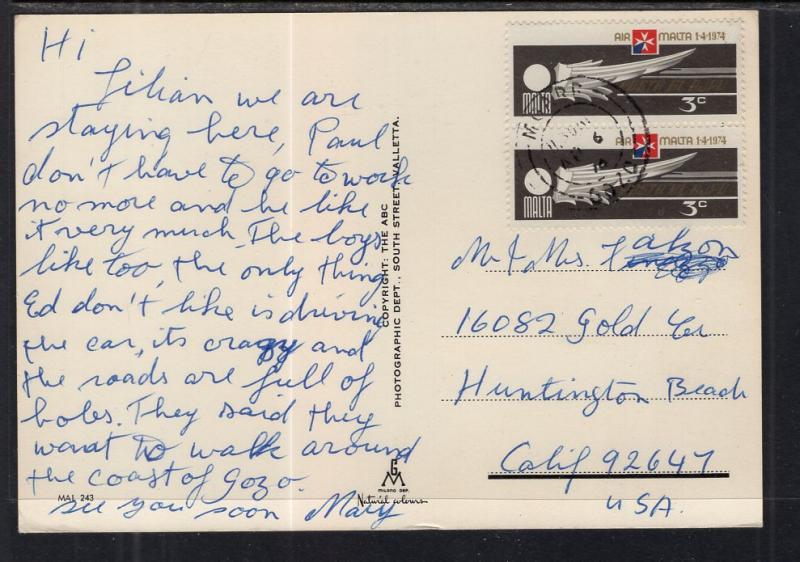 Hi
Lilian we are
staying here, Paul
don't have to go to work
no more and he like
it very much. The boys
like too, the only thing
Ed don't like is driving
the car, its crazy and
the roads are full of
holes. They said they
want to walk around
the coast of Gozo.
see you soon Mary
MAL 243
COPYRIGHT: THE ABC
PHOTOGRAPHIC DEPT., SOUTH STREET, VALLETTA.
MILANO DEP.
Natural colours
AIR MALTA 1·4·1974
MALTA 3c
AIR MALTA 1·4·1974
MALTA 3c
GOZO
Mr & Mrs
16082 Gold Cir
Huntington Beach
Calif 92647
USA.